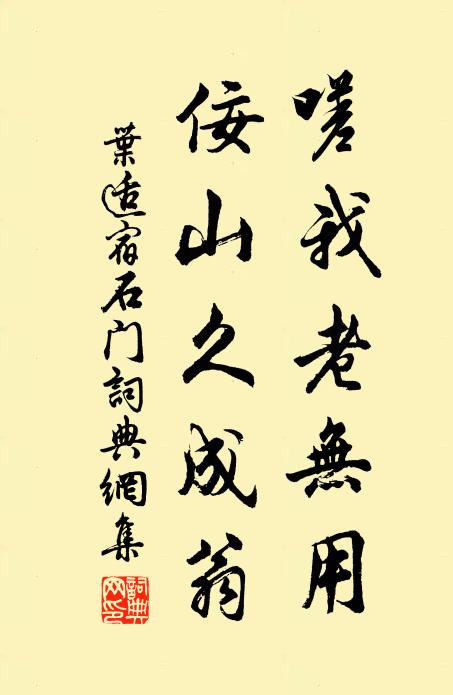 嗟我老無用
佞山久成翁
葉适宿石門詞典網集
詞典網印